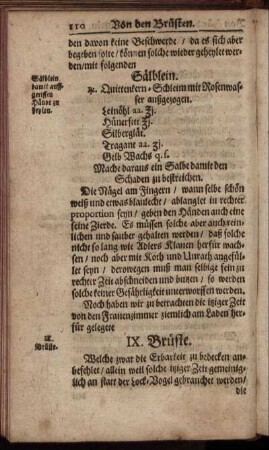 110 Von den Brüsten.
den davon keine Beschwerde / da es sich aber
begeben solte / können solche wieder geheylet wer-
den / mit folgenden
Sälblein
damit auff-
gerissen
Hände zu
heylen.
Sälblein.
℞. Quittenkern-Schleim mit Rosenwas-
ser außgezogen.
Leinöhl aa. ʒj.
Hünerfett ʒj.
Silberglät.
Tragant aa. ʒj.
Gelb Wachs q. s.
Mache daraus ein Salbe damit den
Schaden zu bestreichen.
Die Nägel am Fingern / wann selbe schön
weiß und etwas blaulecht / ablanglet in rechter
proportion seyn / geben den Händen auch eine
feine Zierde. Es müssen solche aber auch rein-
lichen und sauber gehalten werden / daß solche
nicht so lang wie Adlers Klauen herfür wach-
sen / noch aber mit Koth und Unrath angefül-
let seyn / derowegen muß man selbige fein zu
rechter Zeit abschneiden und butzen / so werden
solche keiner Gefährligkeit unterworffen werden.
Noch haben wir zu betrachten die itziger Zeit
von den Frauenzimmer ziemlich am Laden her-
für gelegete
IX.
Brüste.
IX. Brüste.
Welche zwar die Erbarkeit zu bedecken an-
befiehlet / allein weil solche itziger Zeit gemeinig-
lich an statt der Lock-Vogel gebrauchet werden /
die